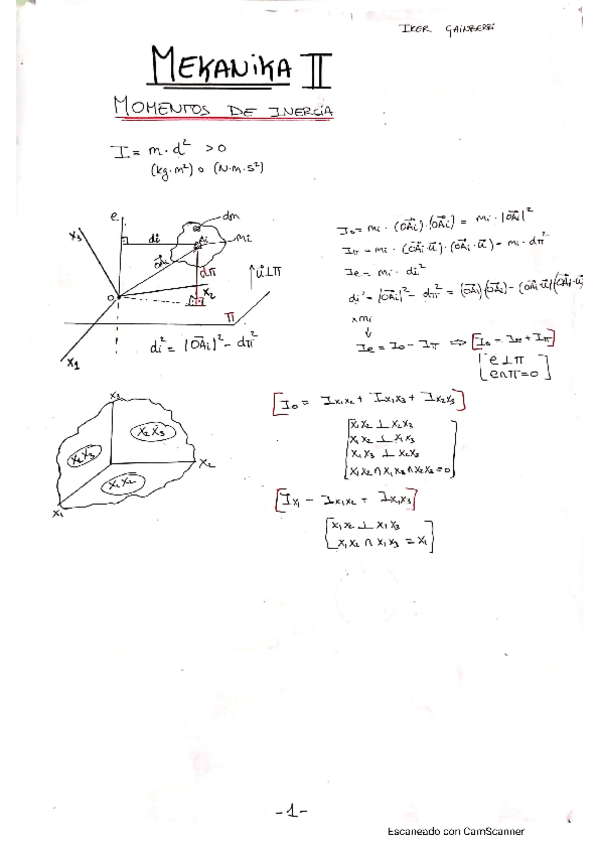 IKER GAINBERRI
MEKANIKA II
MOMENTOS DE INERCIA
I = m · d² > 0
(kg·m²) o (N·m·s²)
e
x₃
di
dm
Ai
mi
OAi
dπ
o
x₂
u⊥π
π
x₁
di² = |OAi|² - dπ²
Io = mi · (OAi)·(OAi) = mi · |OAi|²
Iπ = mi · (OAi·u)·(OAi·u) = mi · dπ²
Ie = mi · di²
di² = |OAi|² - dπ² = (OAi)(OAi) - (OAi·u)(OAi·u)
xmi
↓
Ie = Io - Iπ ⇒ [Io = Ie + Iπ]
[e⊥π
e∩π=0]
x₃
x₂x₃
x₂x₃
x₁x₂
x₂
x₁
[Io = Ix₁x₂ + Ix₁x₃ + Ix₂x₃]
[x₁x₂ ⊥ x₂x₃
x₁x₂ ⊥ x₁x₃
x₁x₃ ⊥ x₂x₃
x₁x₂ ∩ x₁x₃ ∩ x₂x₃ = 0]
[Ix₁ = Ix₁x₂ + Ix₁x₃]
[x₁x₂ ⊥ x₁x₃
x₁x₂ ∩ x₁x₃ = x₁]
-1-
Escaneado con CamScanner